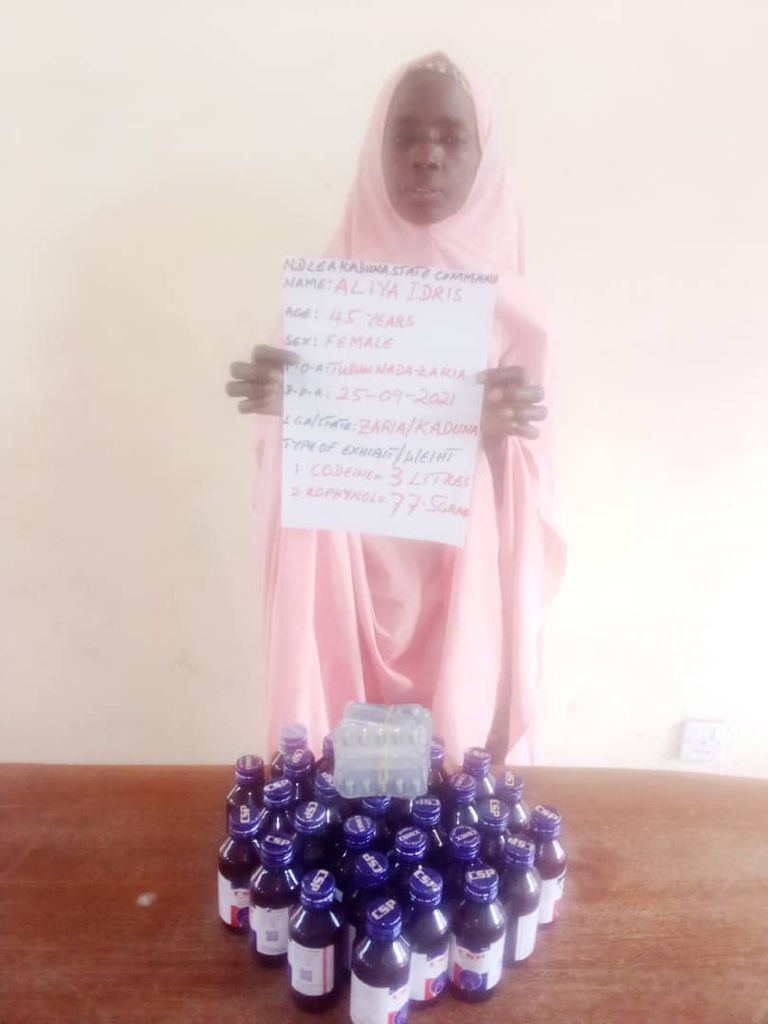 NDLEA KADUNA STATE COMMAND
NAME: ALIYA IDRIS
AGE: 45 YEARS
SEX: FEMALE
P.O.A: TUDUN WADA-ZARIA
D.O.A: 25-09-2021
LGA/STATE: ZARIA/KADUNA
TYPE OF EXHIBIT/WEIHT
1. CODEINE = 3 LITRES
2. ROPHYNOL = 77.5GRAM
CSP
CSP
CSP
CSP
CSP
CSP
CSP
CSP
CSP
CSP